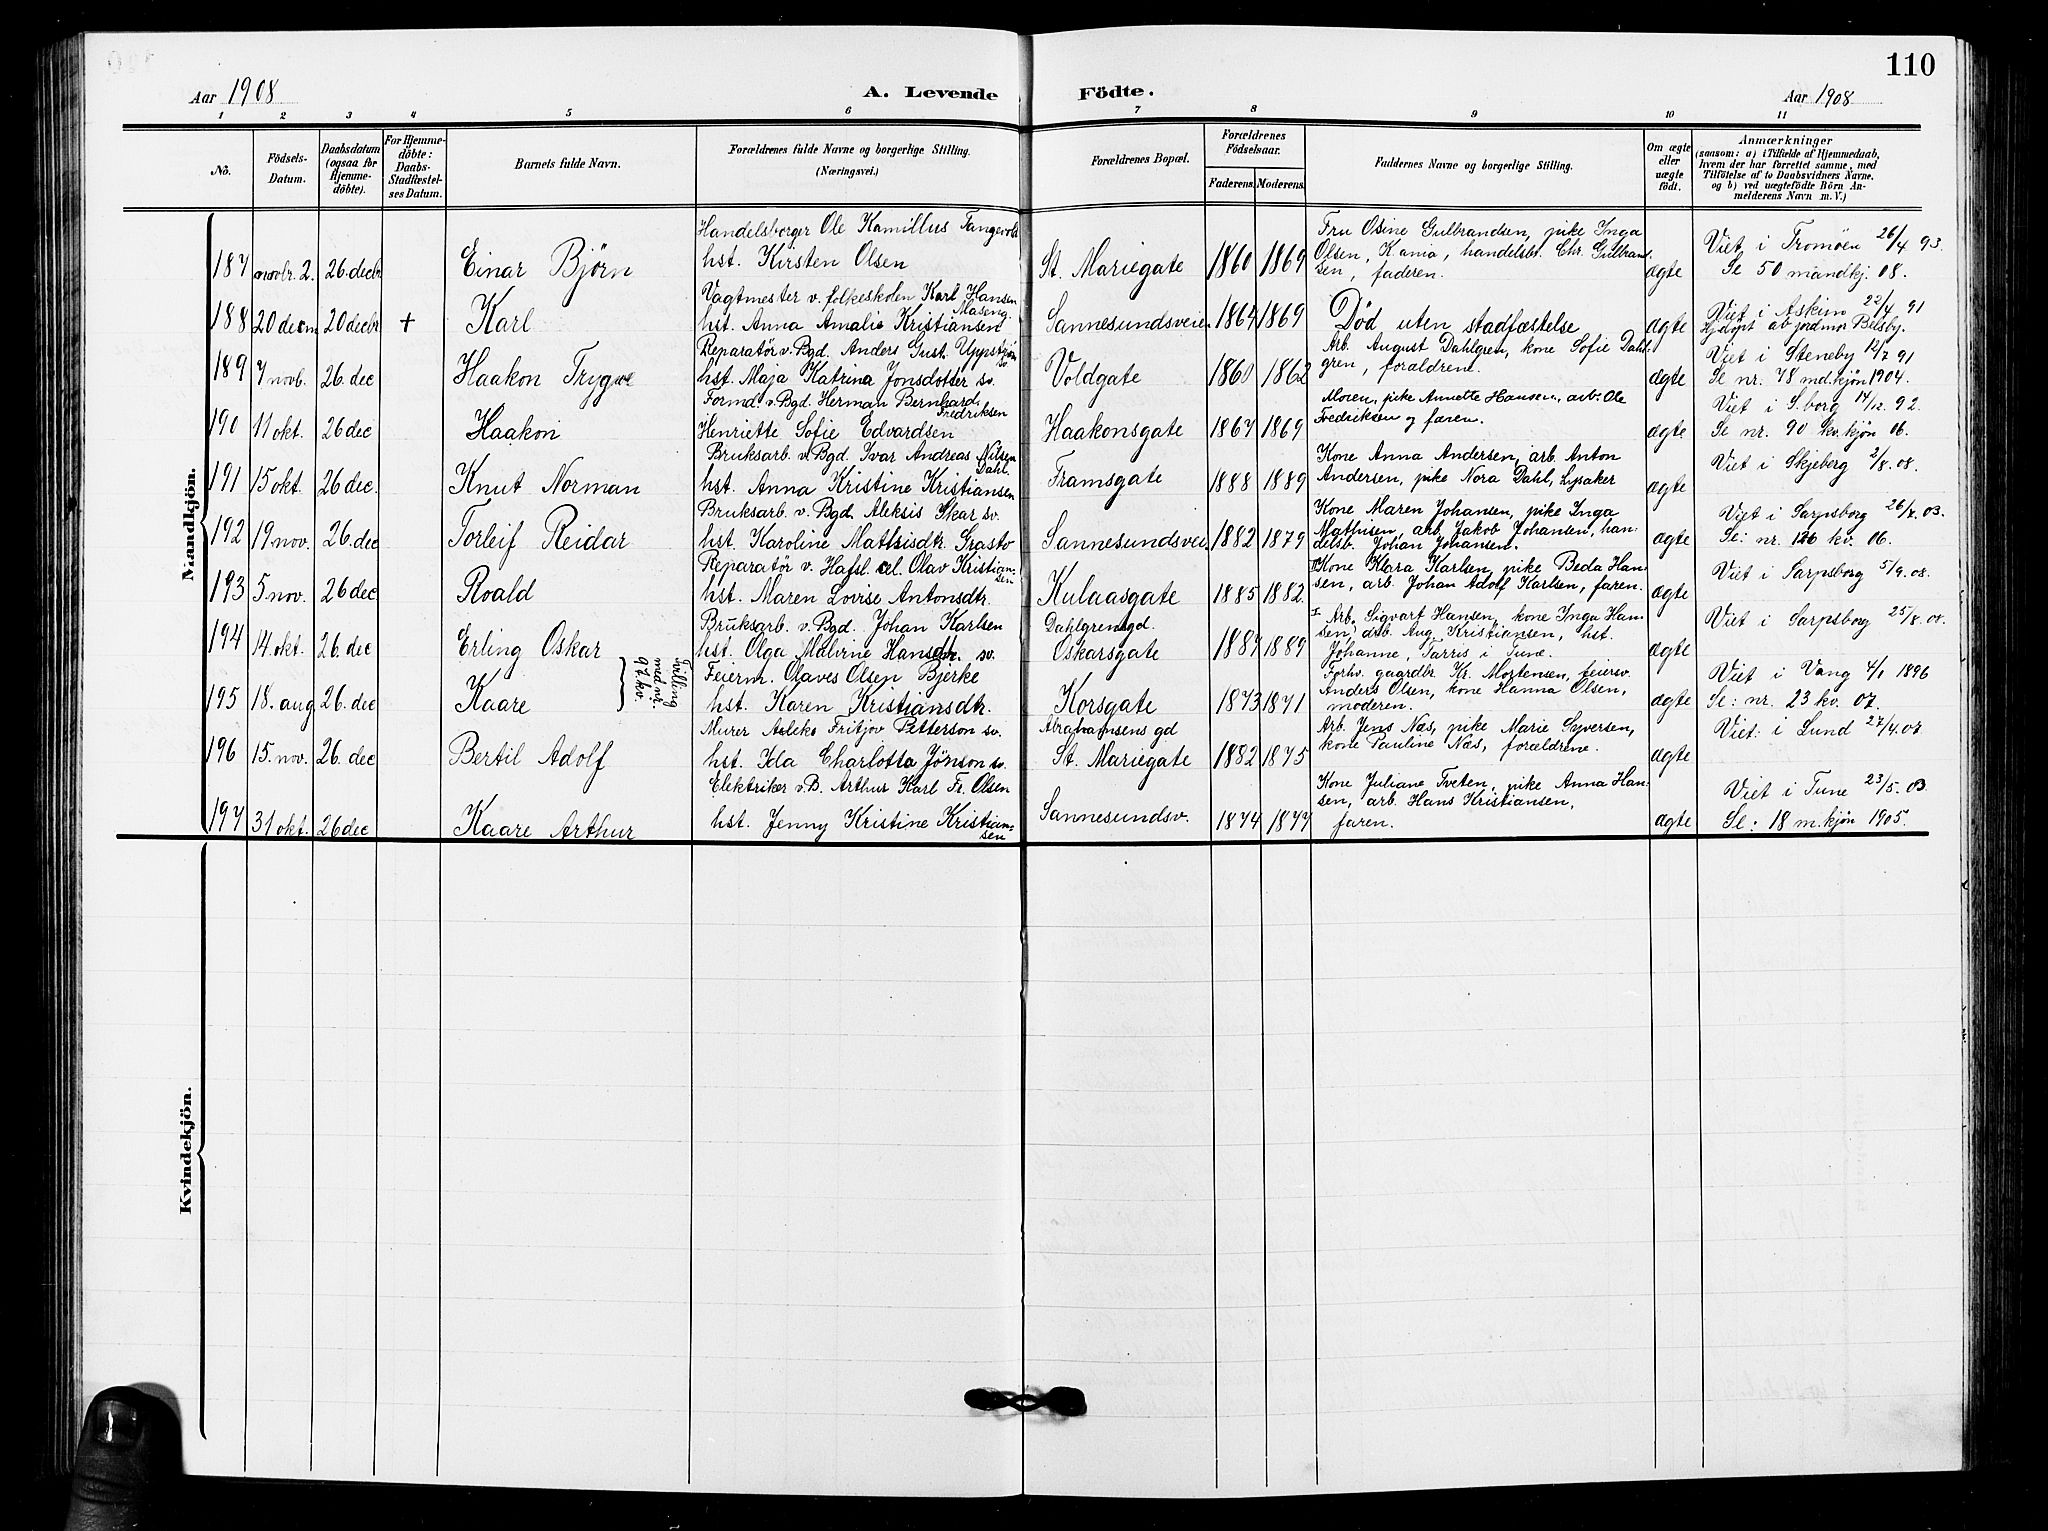 110
Aar 1908
A. Levende Födte.
Aar 1908
1 2 3 4 5 6 7 8 9 10 11
No.
Födsels-
Datum.
Daabsdatum
(ogsaa for
Hjemme-
döbte).
For Hjemme-
döbte:
Daabs-
Stadfæstel-
ses Datum.
Barnets fulde Navn.
Forældrenes fulde Navne og borgerlige Stilling.
(Næringsvei.)
Forældrenes Bopæl.
Forældrenes
Födselsaar.
Faderens. Moderens.
Faddernes Navne og borgerlige Stilling.
Om ægte
eller
uægte
født.
Anmærkninger
(saasom: a) i Tilfælde af Hjemmedaab,
hvem der har forrettet samme, med
Tilföielse af to Daabsvidners Navne,
og b) ved uægtefödte Börn An-
melderens Navn m. V.)
Mandkjön.
187 novbr. 2. 26. decbr Einar Björn
Handelsborger Ole Kamillus Tangevold
hst. Kirsten Olsen
St. Mariegate 1860 1869
Fru Osine Gulbrandsen, pike Inga
Olsen, Kania, handelsbt. Chr. Gulbran-
sen, faderen.
ægte
Viet i Tromöen 26/4 93
Se 50 mandkj. 08.
188 20 decm 20 decbr + Karl
Vagtmester v. folkeskolen Karl Hansen
Maseng.
hst. Anna Amalie Kristiansen
Sannesundsveie. 1864 1869
Död uten stadfæstelse
ægte
Viet i Askim 22/4 91
Hjdöpt ab jordmor Belsby.
189 7 novb. 26. dec Haakon Trygve
Reparatör v. Bgd. Anders Gust. Uppstjön
sv
hst. Maja Katrina Jonsdotter sv.
Voldgate 1860 1862
Arb. August Dahlgren, kone Sofie Dahl-
gren, forældrene.
ægte
Viet i Steneby 12/7 91
Se nr. 78 md.kjön 1904.
190 11 okt. 26 dec Haakon
Formd. v. Bgd. Herman Bernhard
Fredriksen
Henriette Sofie Edvardsen
Haakonsgate 1867 1869
Moren, pike Annette Hansen, arb. Ole
Fredriksen og faren.
ægte
Viet i S.borg 14/12. 92.
Se nr. 90 kv. kjön 06.
191 15 okt. 26 dec. Knut Norman
Bruksarb. v. Bgd. Ivar Andreas Nilsen
Dahl.
hst. Anna Kristine Kristiansen
Framsgate 1888 1889
Kone Anna Andersen, arb. Anton
Andersen, pike Nora Dahl, Lysaker
ægte
Viet i Skjeberg 2/8. 08.
192 19 nov. 26. dec Torleif Reidar
Bruksarb. v. Bgd. Aleksis Skar sv.
hst. Karoline Mathisdtr. Grasto
Sannesundsvei 1882 1879
Kone Maren Johansen, pike Inga
Mathisen, arb. Jakob Johansen, han-
delsb. Johan Johansen.
ægte
Viet i Sarpsborg 26/7. 03.
Se: nr. 126 kv. 06.
193 5 nov. 26 dec Roald
Reparatör v. Hafsl. al. Olav Kristian-
sen
hst. Maren Lovise Antonsdtr.
Kulaasgate 1885 1882
Kone Klara Karlsen, pike Beda Han-
sen, arb. Johan Adolf Karlsen, faren.
ægte
Viet i Sarpsborg 5/9. 08.
194 14. okt. 26. dec Erling Oskar
Bruksarb. v. Bgd. Johan Karlsen
hst. Olga Malvine Hansdtr. sv.
Dahlgrensgd.
Oskarsgate 1887 1889
Arb. Sigvart Hansen, kone Inga Han-
sen, arb. Aug. Kristiansen, hst.
Johanne, Tarris i Tune.
ægte
Viet i Sarpsborg 25/8. 08.
195 18. aug 26. dec Kaare
Tvilling
med nr.
97. kv.
Feierm. Olaves Olsen Bjerke
hst. Karen Kristiansdtr.
Korsgate 1873 1871
Forhv. gaardbr. Kr. Mortensen, feiersv.
Anders Olsen, kone Hanna Olsen,
moderen.
ægte
Viet i Vang 4/1 1896
Se: nr. 23 kv. 07.
196 15. nov. 26. dec Bertil Adolf
Murer Asleks Fritjov Petterson sv.
hst. Ida Charlotta Jönson sv.
Abrahamsens gd
St. Mariegate 1882 1875
Arb. Jens Næs, pike Marie Syversen,
kone Pauline Næs, forældrene.
ægte
Viet: i Lund 27/4. 07
197 31 okt. 26 dec Kaare Arthur
Elektriker v. B. Arthur Karl Fr. Olsen
hst. Jenny Kristine Kristian-
sen
Sannesundsv. 1874 1877
Kone Juliane Tveten, pike Anna Han-
sen, arb. Hans Kristiansen,
faren.
ægte
Viet i Tune 23/5. 03
Se: 18 m. kjön 1905.
Kvindekjön.